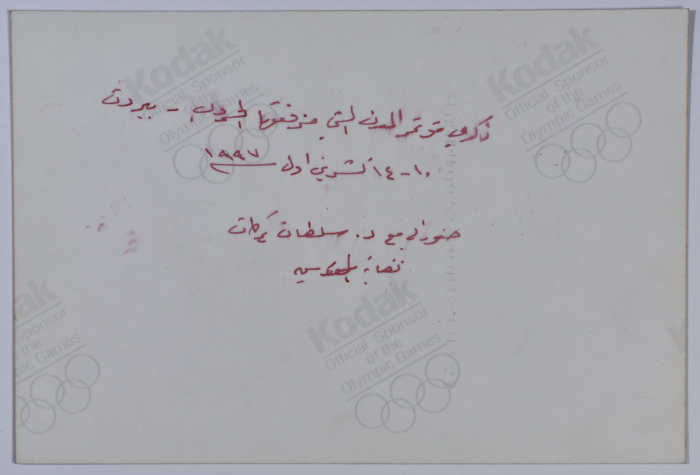 ذكرى مؤتمر المدن التي مزقتها الحروب - بيروت
١٠-١٤ تشرين اول ١٩٩٧
صورة لي مع د. سلطان بركات
نقابة المهندسين
Kodak
Official Sponsor
of the
Olympic Games
Kodak
Official Sponsor
of the
Olympic Games
Kodak
Official Sponsor
of the
Olympic Games
Kodak
Official Sponsor
of the
Olympic Games